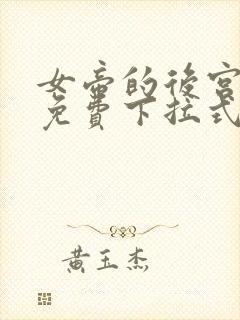 女帝的後宮
免費下拉式
黃玉杰